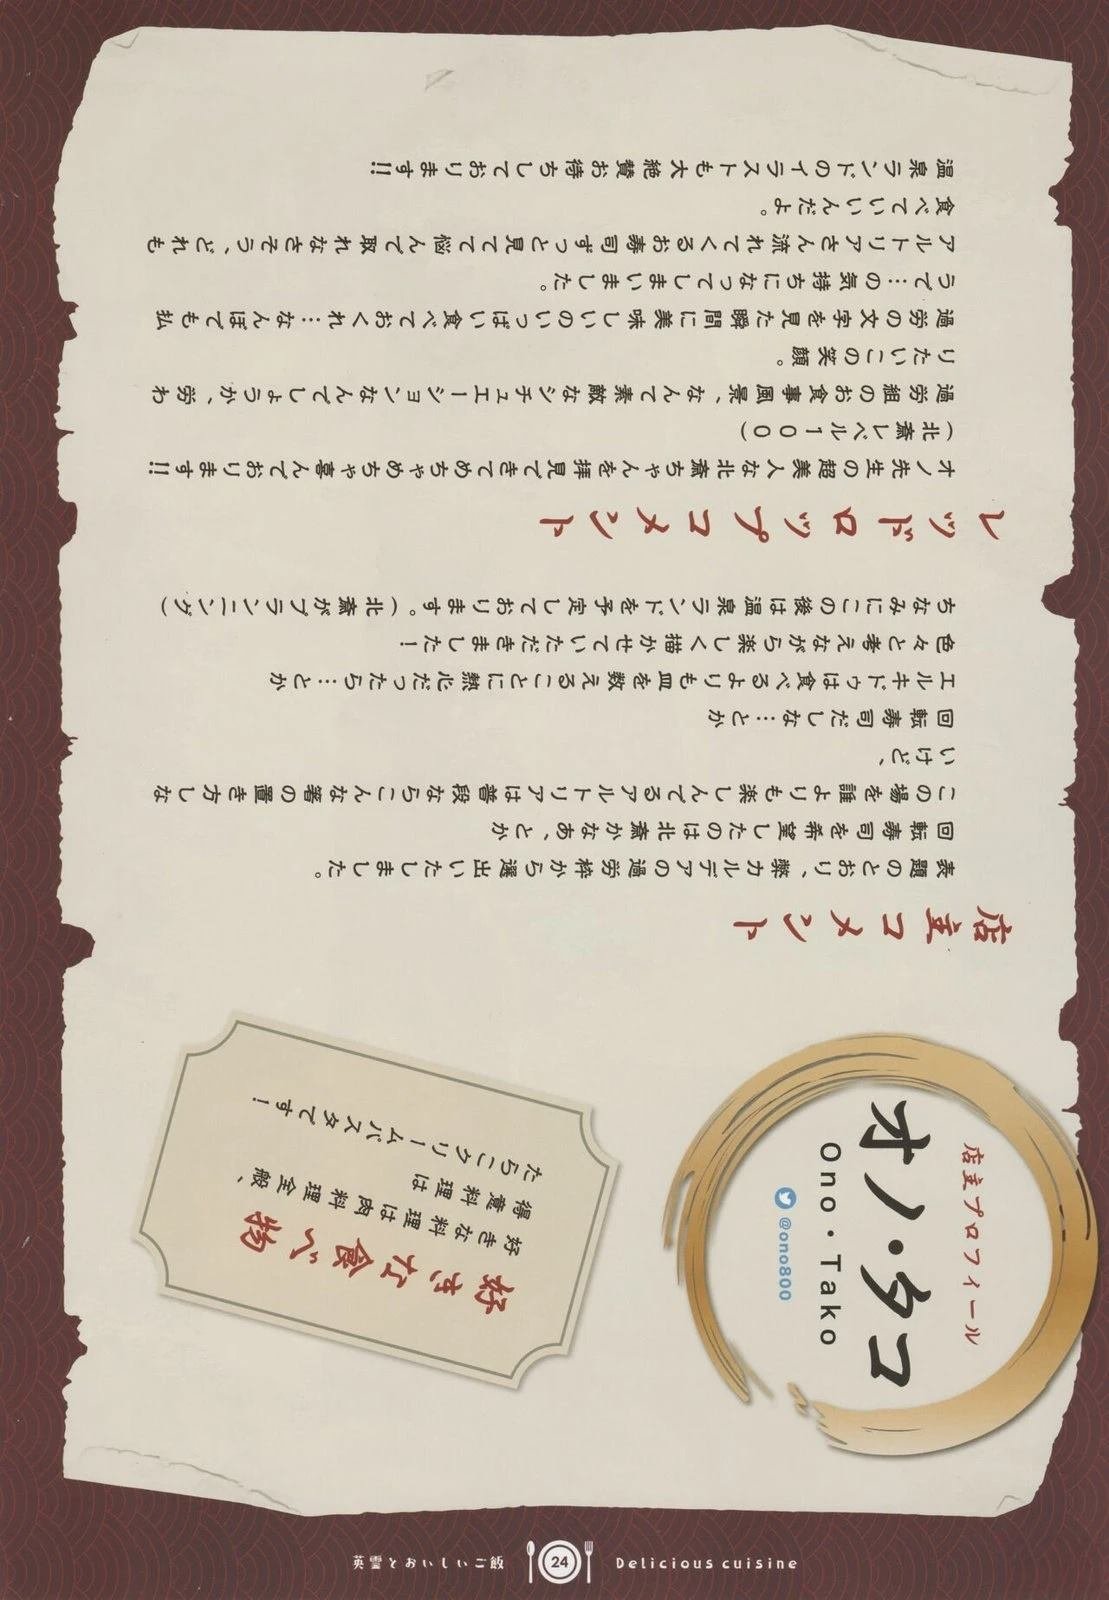 店主プロフィール
オノ・タコ
Ono・Tako
@ono800
好きな食べ物
好きな料理は肉料理全般、
得意料理は
たらこクリームパスタです!
店主コメント
表題のとおり、弊カルデアの過労枠から選出いたしました。
回転寿司を希望したのは北斎かなあ、とか
この場を誰よりも楽しんでるアルトリアは普段ならこんな箸の置き方しな
いけど、
回転寿司だしな…とか
エルキドゥは食べるよりも皿を数えることに熱心だったら…とか
色々と考えながら楽しく描かせていただきました!
ちなみにこの後は温泉ランドを予定しております。(北斎がプランニング)
レッドロップコメント
オノ先生の超美人な北斎ちゃんを拝見できてめちゃめちゃ喜んでおります!!
(北斎レベル100)
過労組のお食事風景、なんて素敵なシチュエーションなんでしょうか、労わ
りたいこの笑顔。
過労の文字を見た瞬間に美味しいのいっぱい食べておくれ…なんぼでも払
うで…の気持ちになってしまいました。
アルトリアさん流れてくるお寿司ずっと見てて悩んで取れなさそう、どれも
食べていいんだよ。
温泉ランドのイラストも大絶賛お待ちしております!!
英霊とおいしいご飯
24
Delicious cuisine